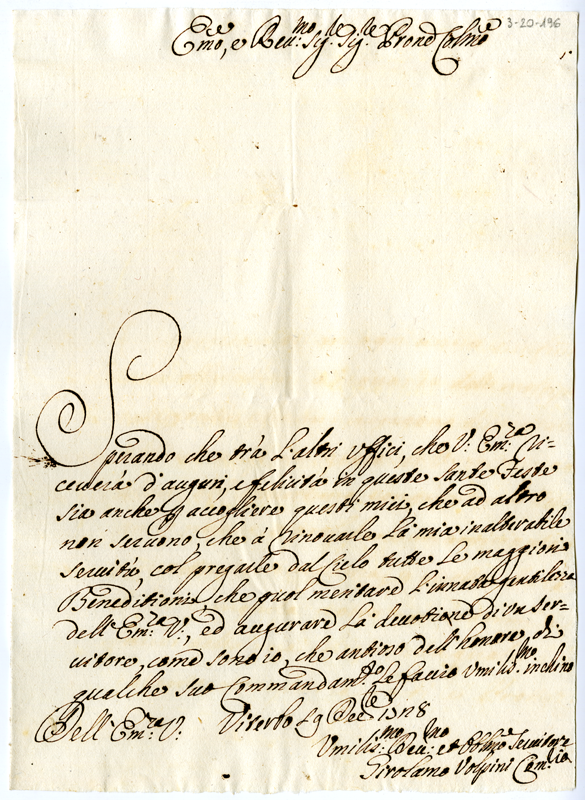 3-20-196
Em̃o, e Reu:mo Sig.re Sig.re Prone Colmo
Sperando che trà l'altri Uffici, che V: Em:za ri-
ceuerà d'auguri, e felicità in queste Sante Feste
sia anche p accogliere questi miei, che ad altro
non seruono che à rinouarle la mia inalterabile
seruitù, col pregarle dal Cielo tutte le maggiori
Beneditioni, che puol meritare l'innata gentilezza
dell'Em:za V:, ed augurare la deuotione di un ser-
uitore, come sono io, che ambino dell'honore, di
qualche suo Commandam.to le faccio Umilis:mo inchino
Dell'Em:za V: Viterbo 29 Dec.bre 1728
Umilis:mo Deu:mo et Oblmo Seruitore
Girolamo Volpini